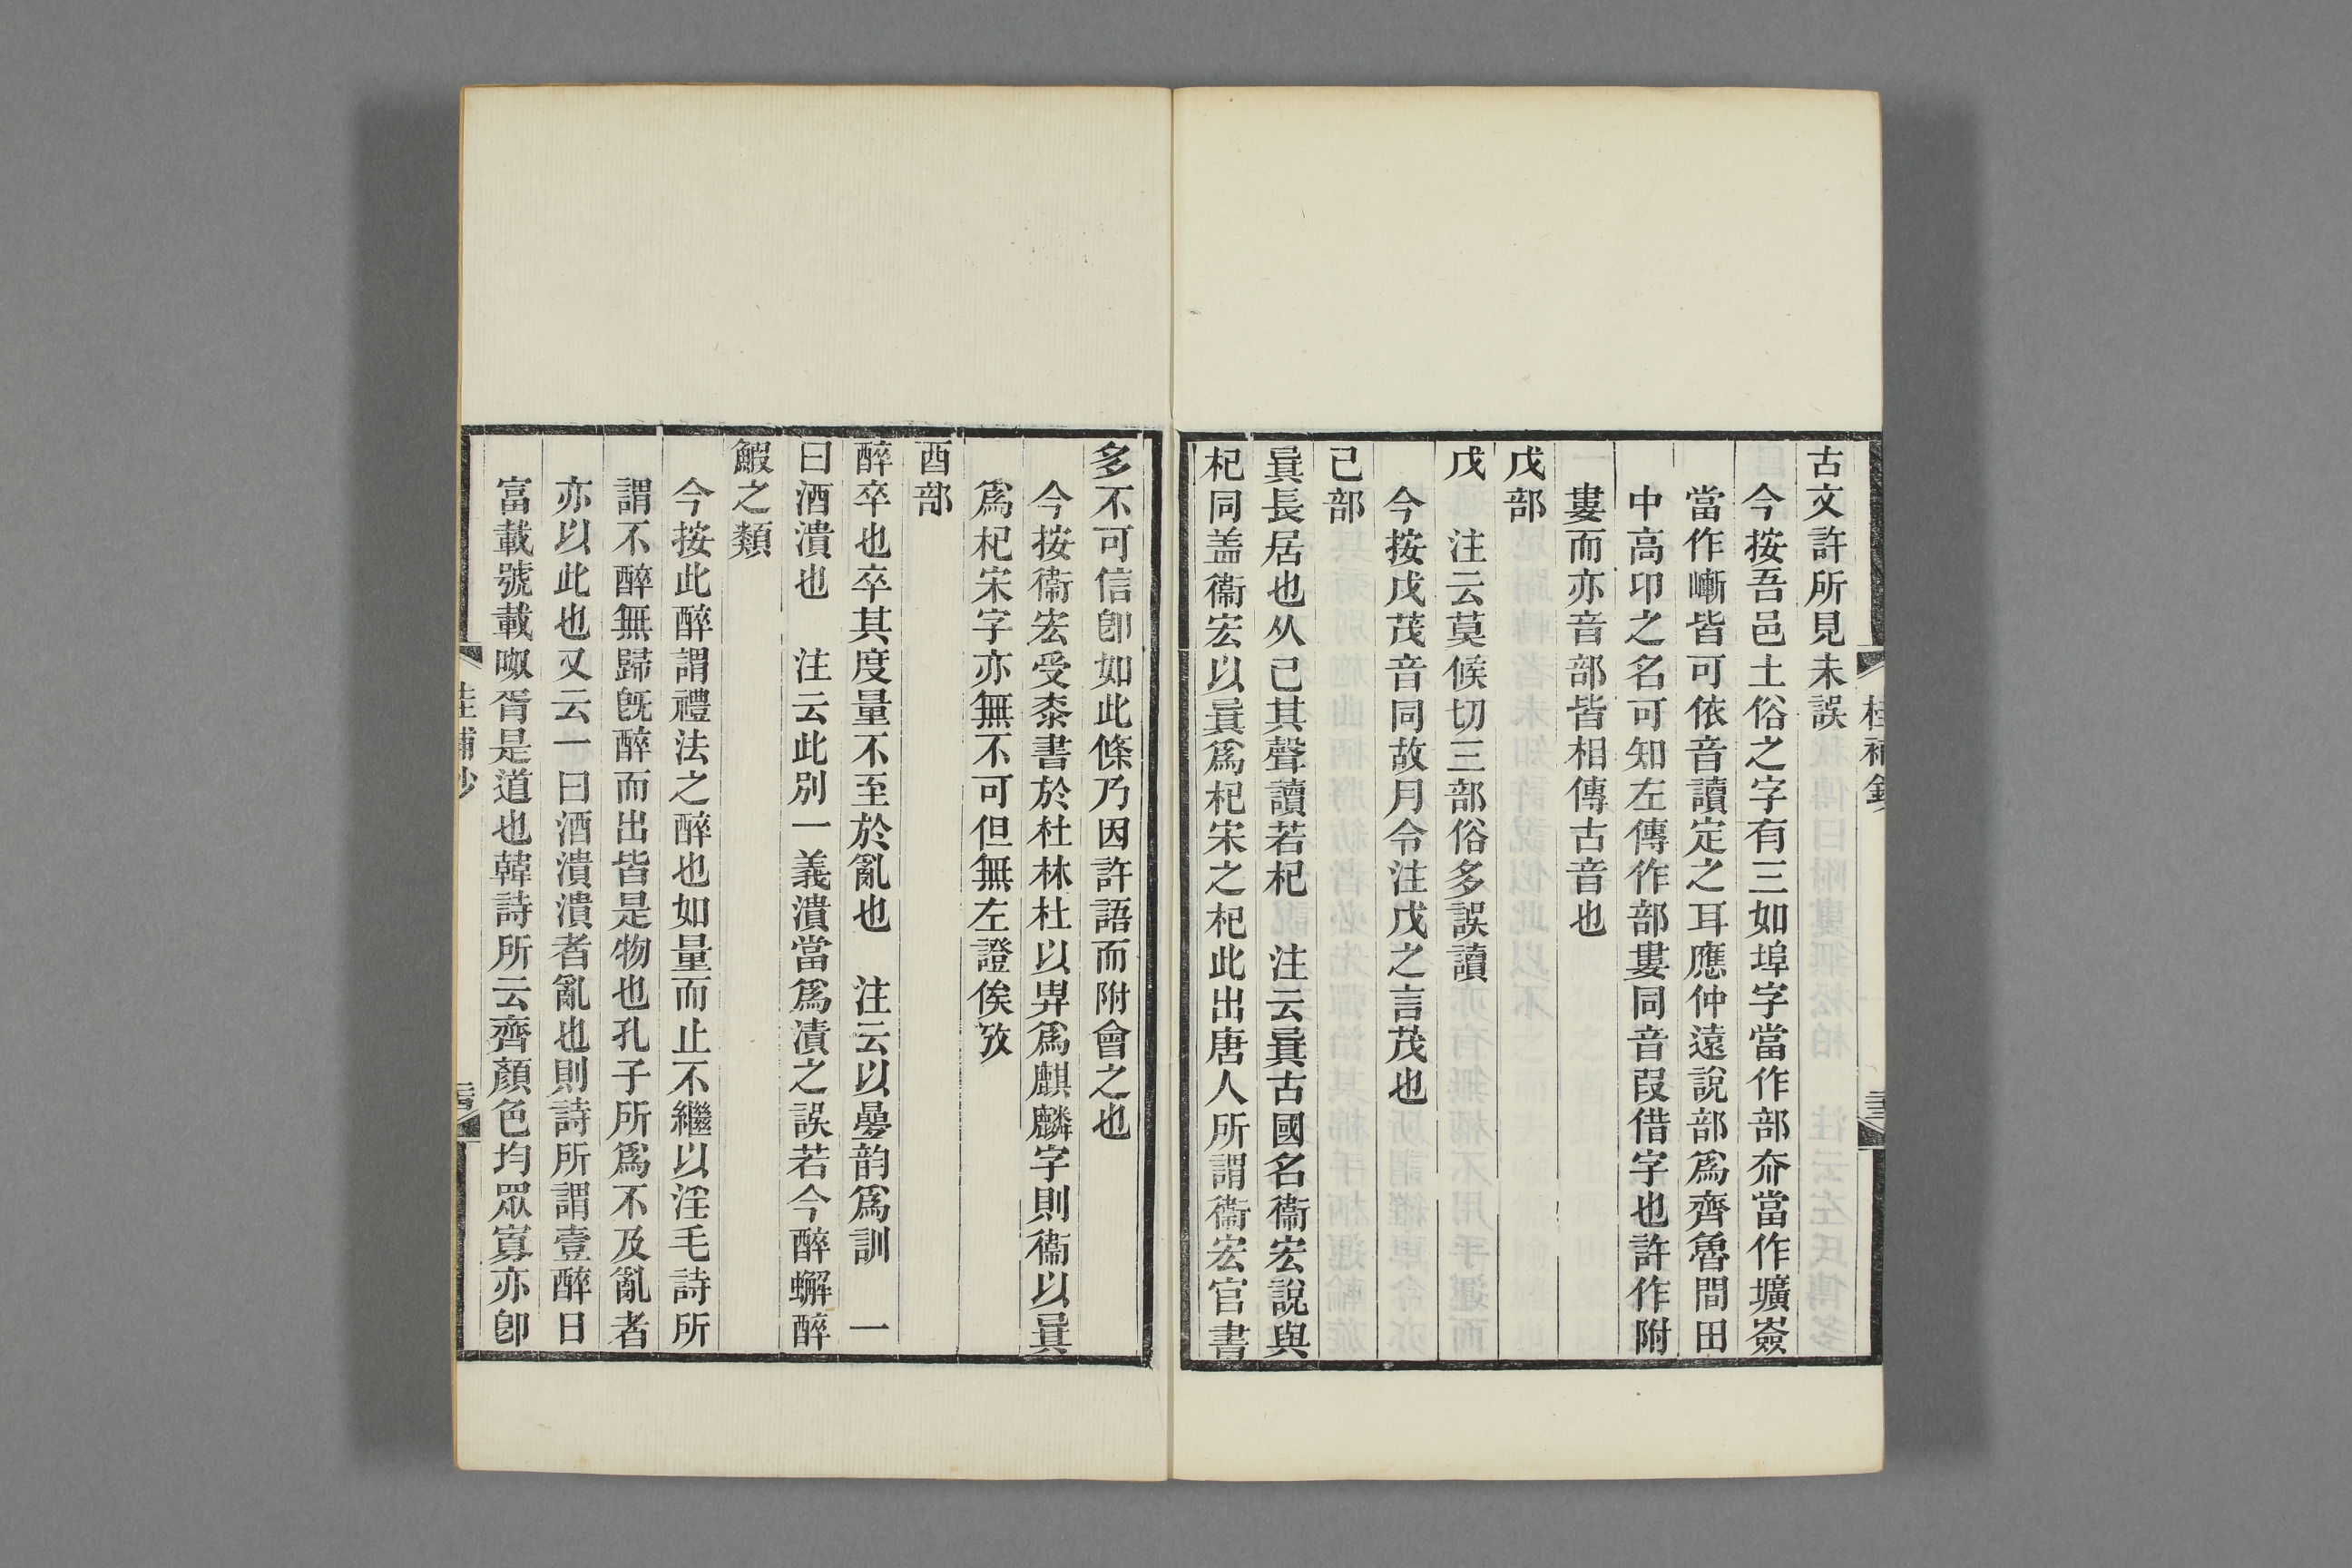 古文許所見未誤
今按吾邑土俗之字有三如埠字當作部夼當作壙薟
當作嶃皆可依音讀定之耳應仲遠說部爲齊魯間田
中高卬之名可知左傳作部婁同音叚借字也許作附
婁而亦音部皆相傳古音也
戊部
戊　注云莫候切三部俗多誤讀
今按戊茂音同故月令注戊之言茂也
己部
㠱長居也从己其聲讀若杞　注云㠱古國名衞宏說與
杞同盖衞宏以㠱爲杞宋之杞此出唐人所謂衞宏官書
多不可信卽如此條乃因許語而附會之也
今按衞宏受桼書於杜林杜以㫷爲麒麟字則衞以㠱
爲杞宋字亦無不可但無左證俟攷
酉部
醉卒也卒其度量不至於亂也　注云以曡韵爲訓　一
曰酒潰也　注云此別一義潰當爲漬之誤若今醉蠏醉
鰕之類
今按此醉謂禮法之醉也如量而止不繼以淫毛詩所
謂不醉無歸旣醉而出皆是物也孔子所爲不及亂者
亦以此也又云一曰酒潰潰者亂也則詩所謂壹醉日
富載號載呶胥是道也韓詩所云齊顏色均眾寡亦卽